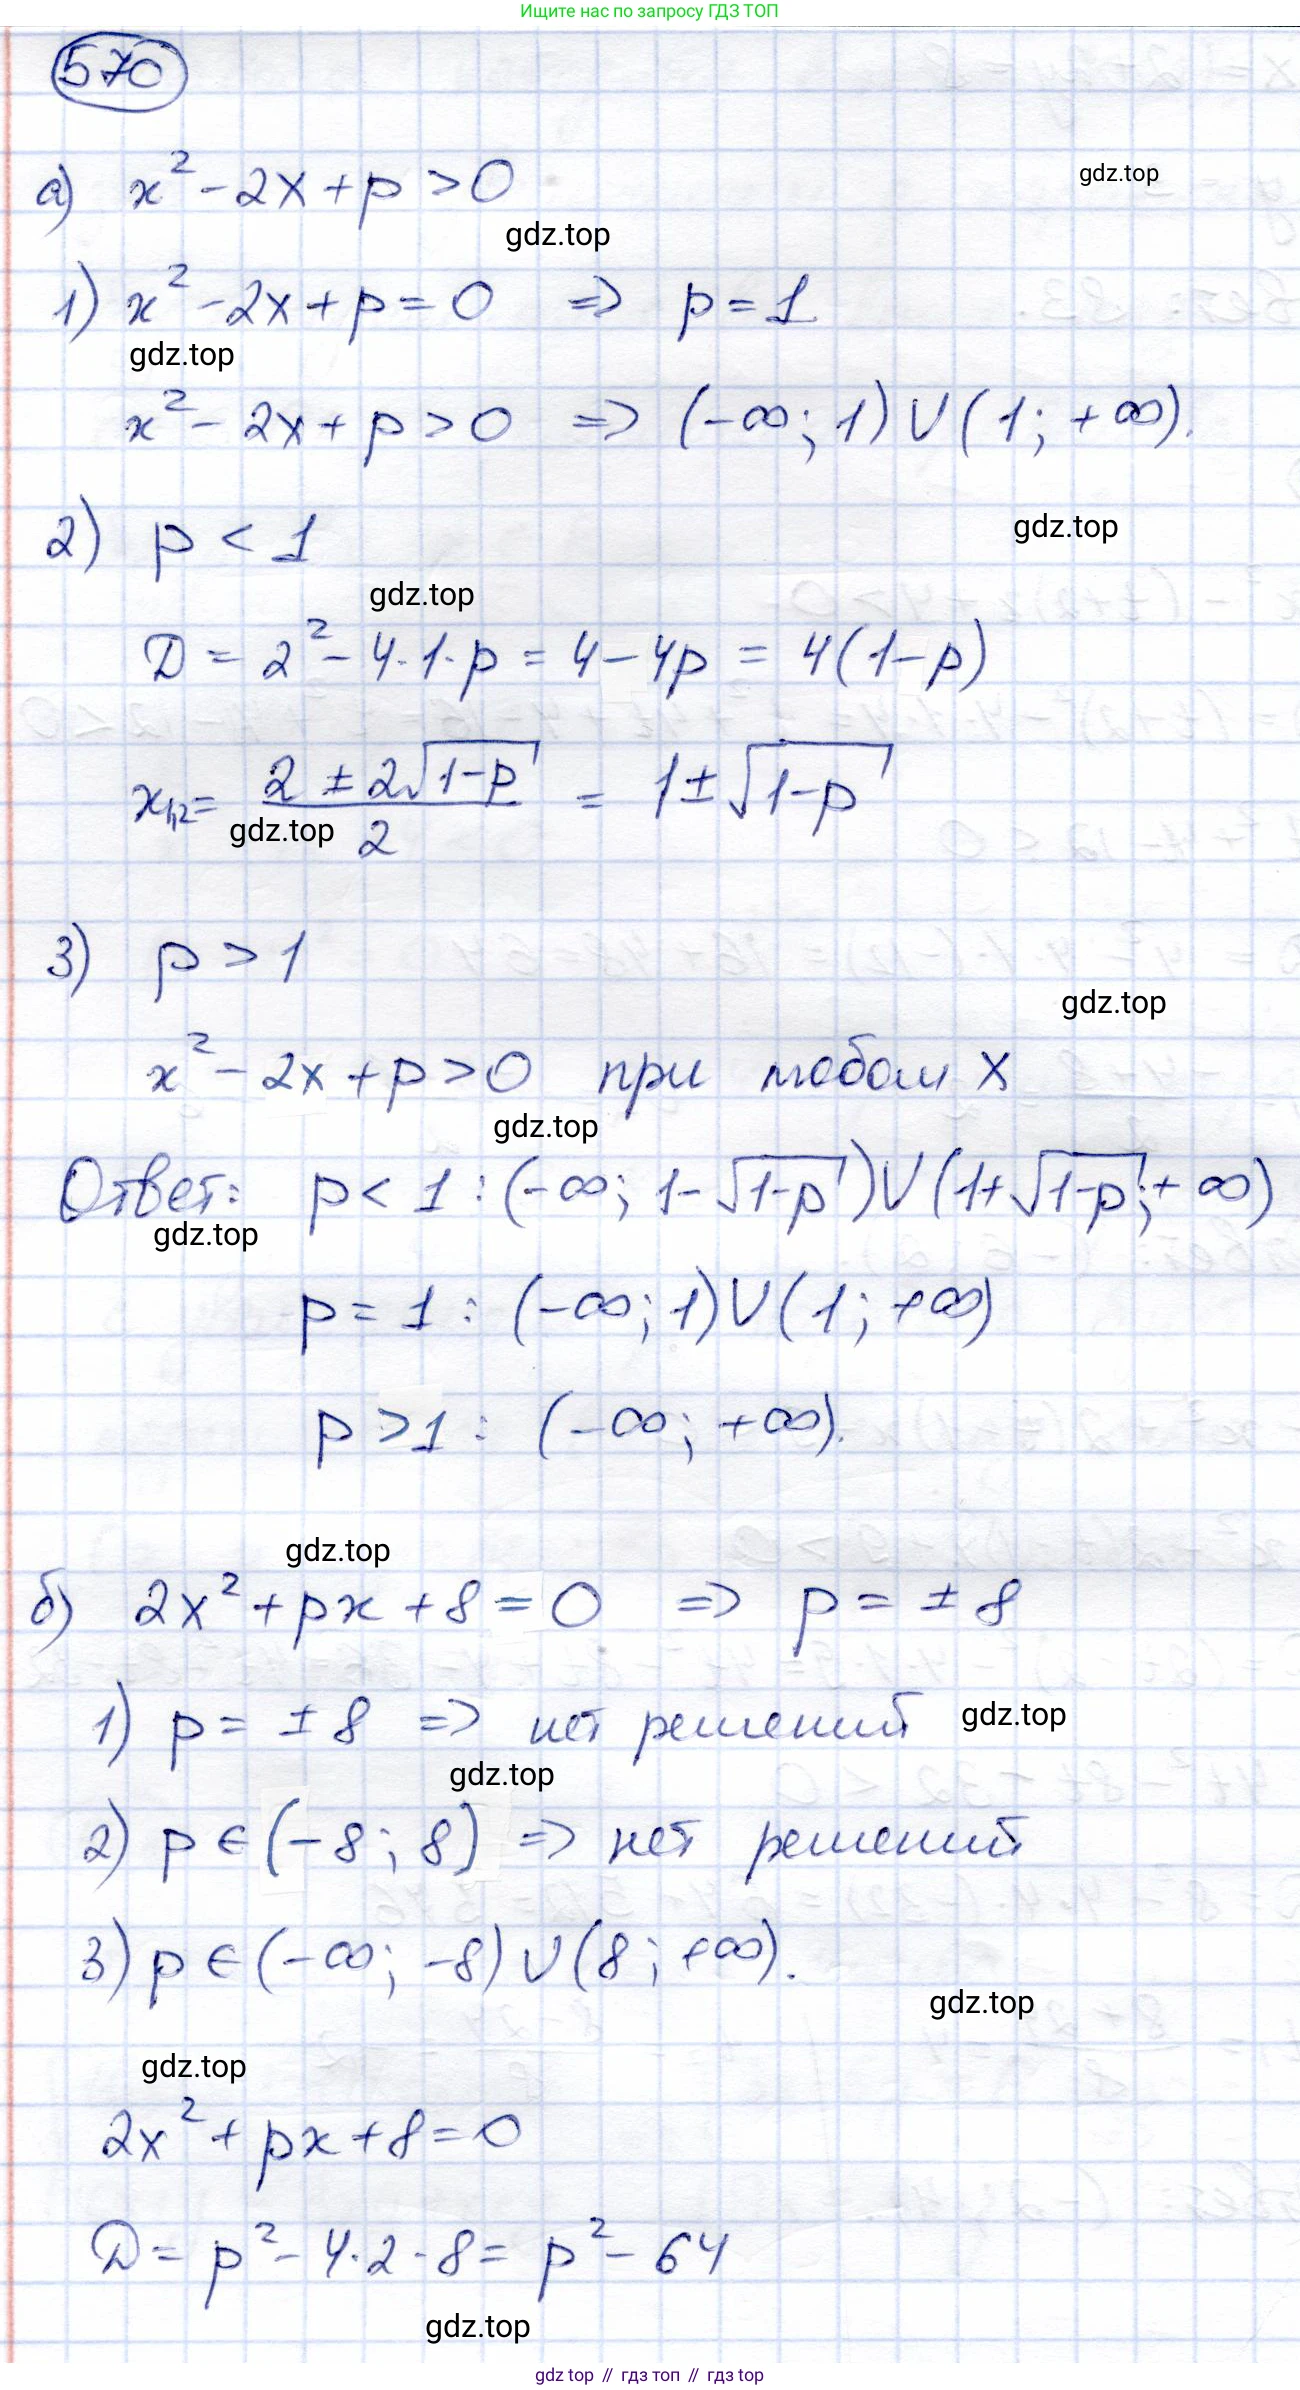 Ищите нас по запросу ГДЗ ТОП
570
а) x² - 2x + p > 0
gdz.top
gdz.top
1) x² - 2x + p = 0 => p = 1
gdz.top
x² - 2x + p > 0 => (-∞; 1) ∪ (1; +∞).
2) p < 1
gdz.top
gdz.top
D = 2² - 4·1·p = 4 - 4p = 4(1-p)
x₁,₂ = (2 ± 2√(1-p))/2 = 1 ± √(1-p)
gdz.top
3) p > 1
gdz.top
x² - 2x + p > 0 при любом x
gdz.top
Ответ: p < 1 : (-∞; 1-√(1-p)) ∪ (1+√(1-p); +∞)
gdz.top
p = 1 : (-∞; 1) ∪ (1; +∞)
p > 1 : (-∞; +∞).
gdz.top
б) 2x² + px + 8 = 0 => p = ± 8
1) p = ± 8 => нет решений
gdz.top
gdz.top
2) p ∈ (-8; 8) => нет решений
3) p ∈ (-∞; -8) ∪ (8; +∞).
gdz.top
gdz.top
2x² + px + 8 = 0
D = p² - 4·2·8 = p² - 64
gdz.top
gdz top // гдз топ // гдз top